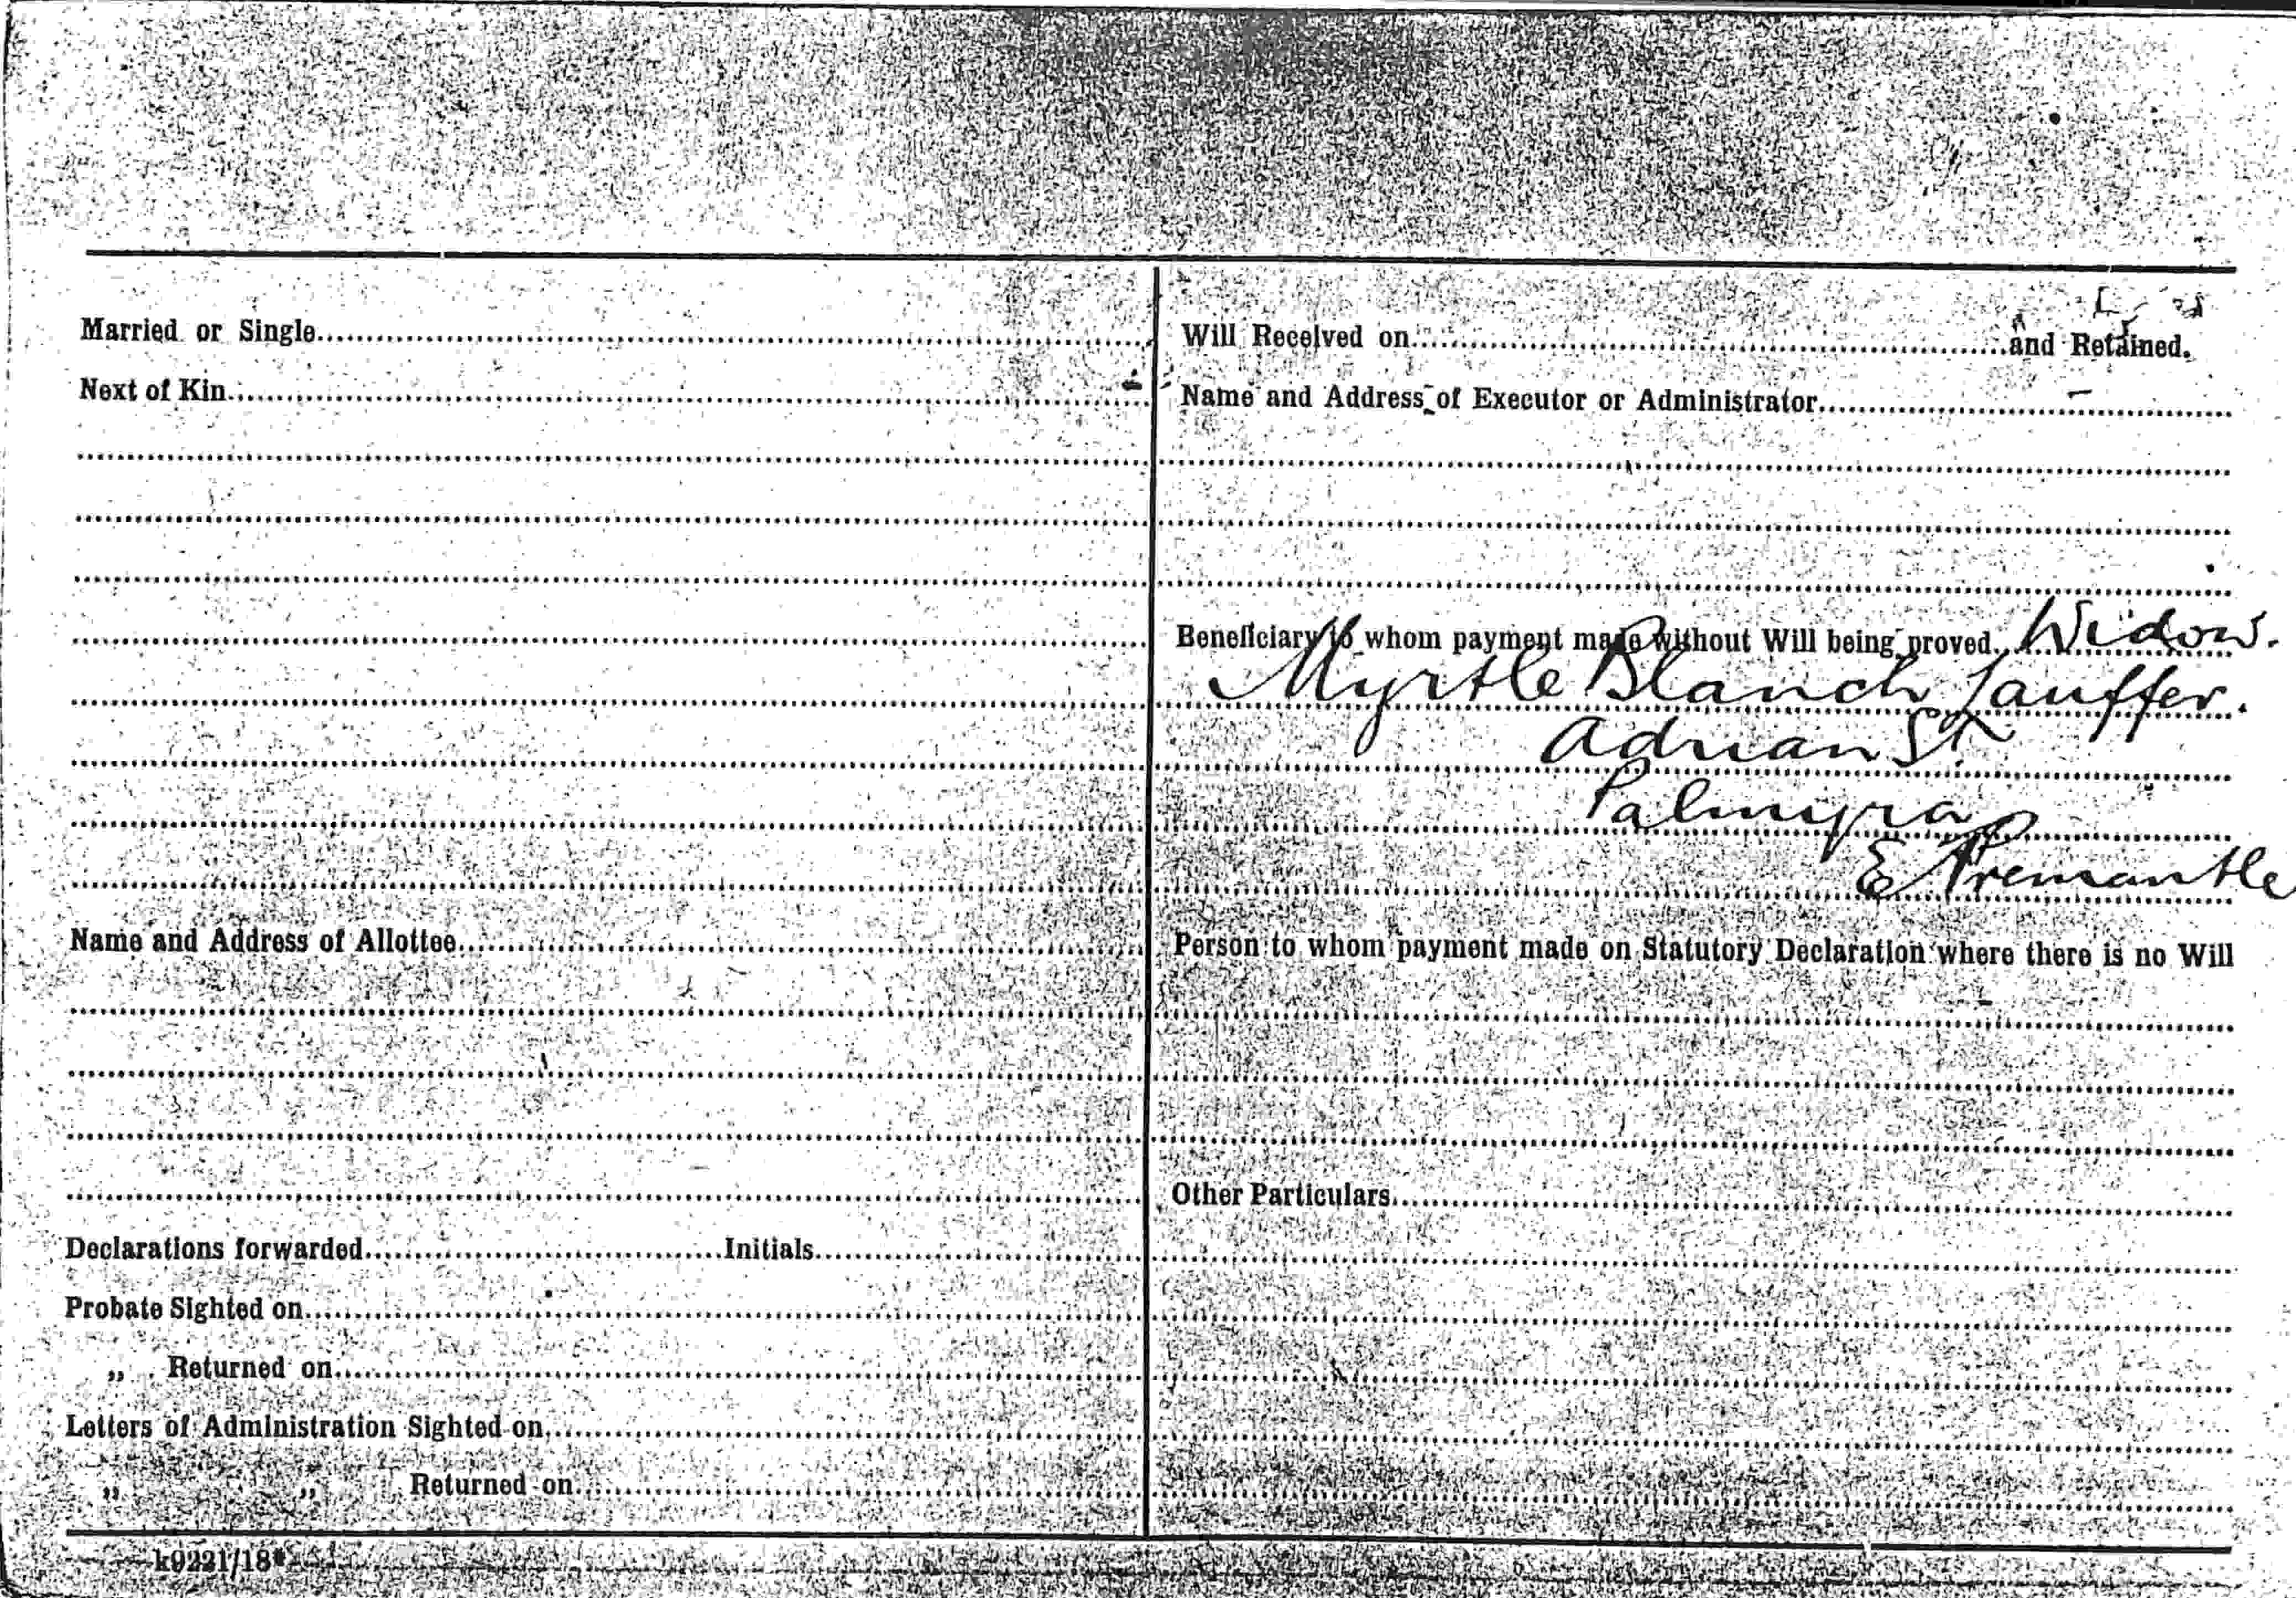 Married or Single
Next of Kin
Name and Address of Allottee
Declarations forwarded Initials
Probate Sighted on
„ Returned on
Letters of Administration Sighted on
„ „ Returned on
k9221/18*
Will Received on and Retained.
Name and Address of Executor or Administrator
Beneficiary to whom payment made without Will being proved. Widow.
Myrtle Blanch Lauffer.
Adrian St.
Palmyra
E Fremantle
Person to whom payment made on Statutory Declaration where there is no Will
Other Particulars